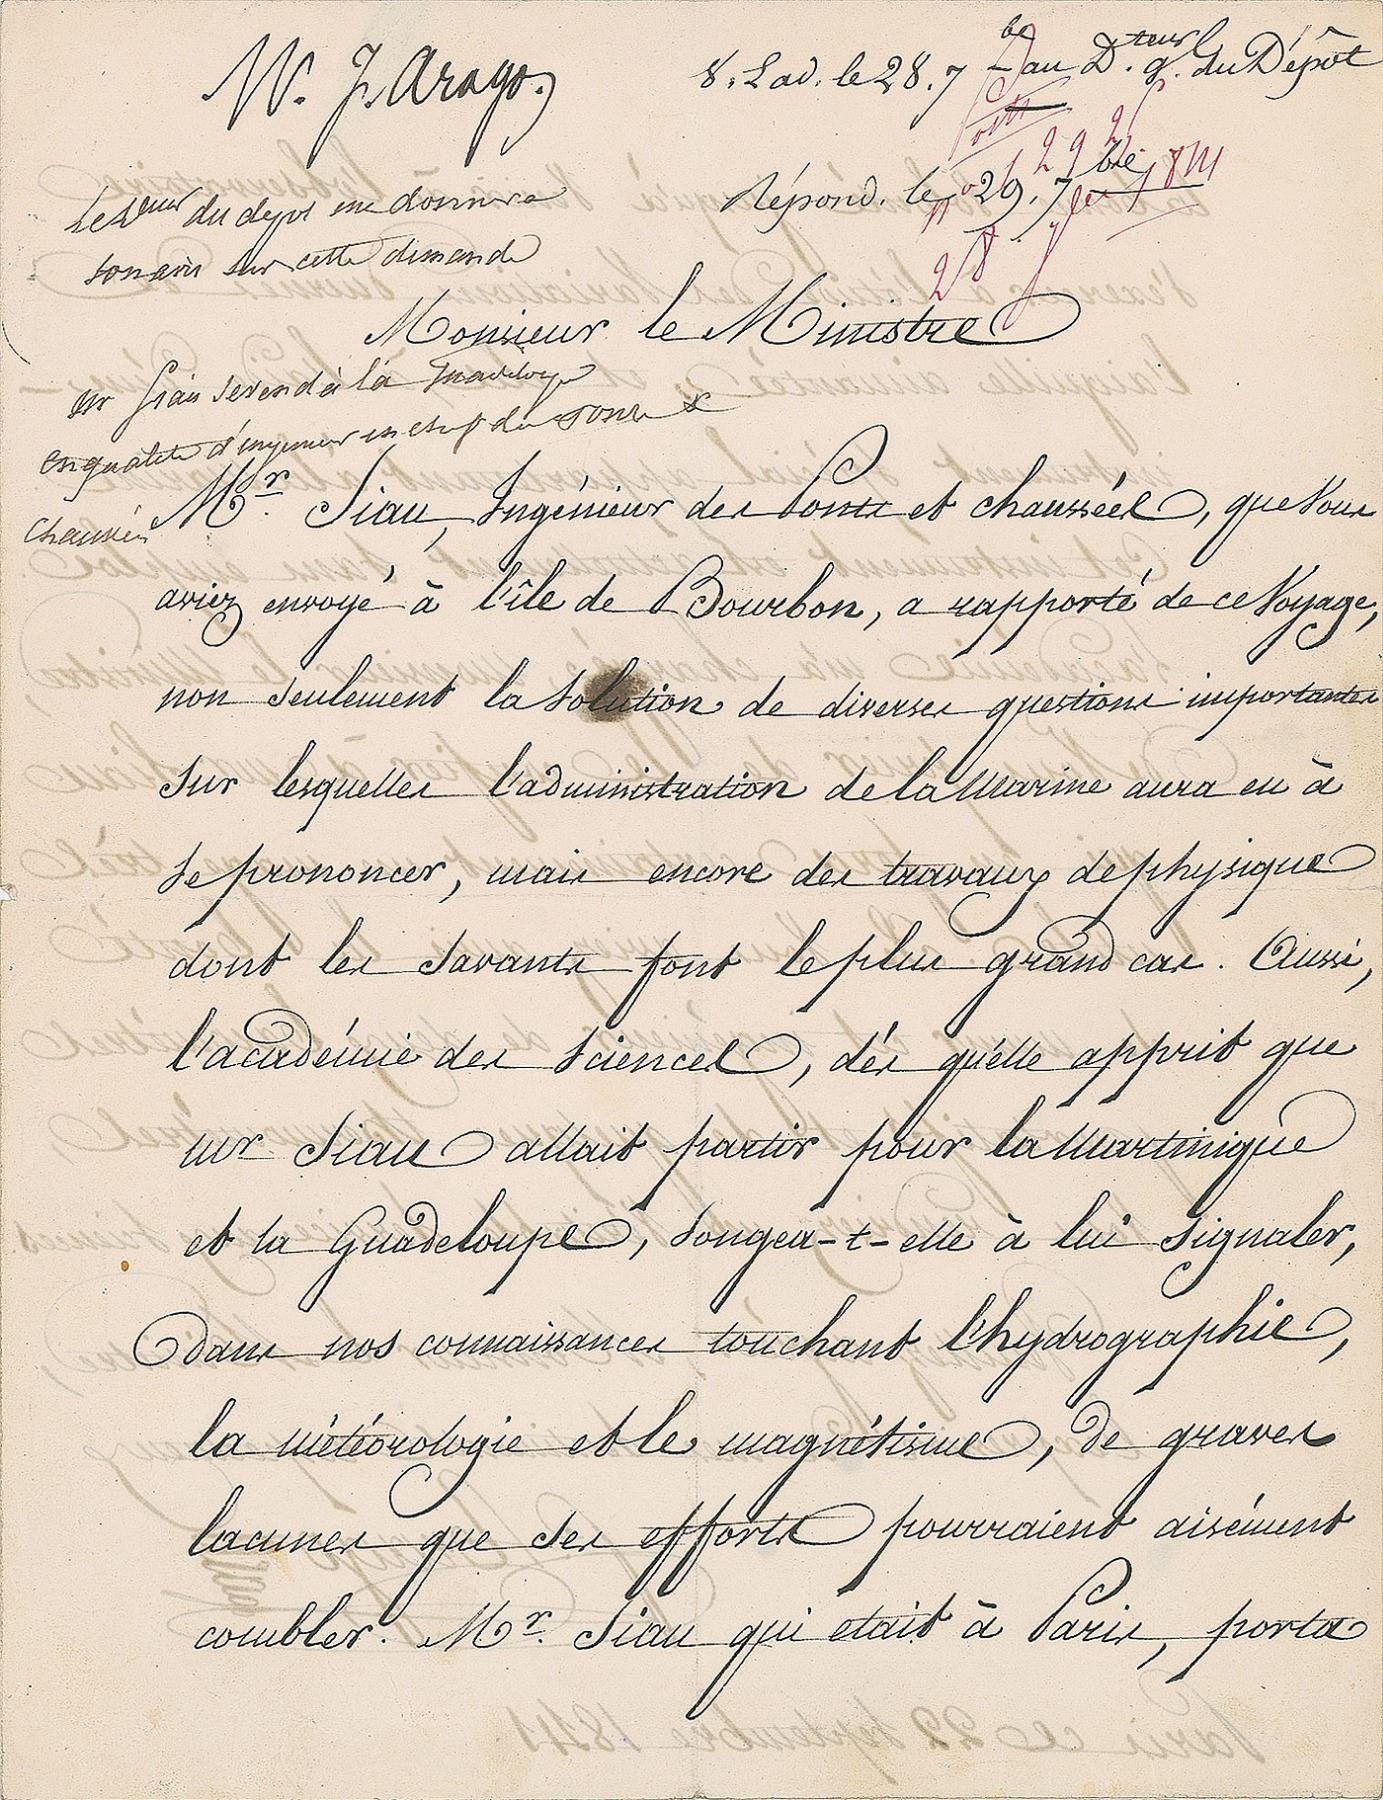 M. F. Arago
8. Lad. le 28. 7bre au Dteur gl. du Dépôt
Répond. le 29. 7bre
Le Dteur du depot me donnera
son avis sur cette demande
Monsieur le Ministre
Mr Siau se rend à la Guadeloupe
en qualité d'ingenieur en chef des Ponts &
Chaussées
Mr. Siau, Ingénieur des Ponts et chaussées, que Vous
aviez envoyé à l'île de Bourbon, a rapporté de ce Voyage,
non seulement la solution de diverses questions importantes
sur lesquelles l'administration de la Marine aura eu à
se prononcer, mais encore des travaux de physique
dont les Savants font le plus grand cas. Aussi,
l'académie des Sciences, dés qu'elle apprit que
Mr Siau allait partir pour la Martinique
et la Guadeloupe, songea-t-elle à lui signaler,
dans nos connaissances touchant l'hydrographie,
la météorologie et le magnétisme, de graves
lacunes que ses efforts pourraient aisément
combler. Mr. Siau qui etait à Paris, porta